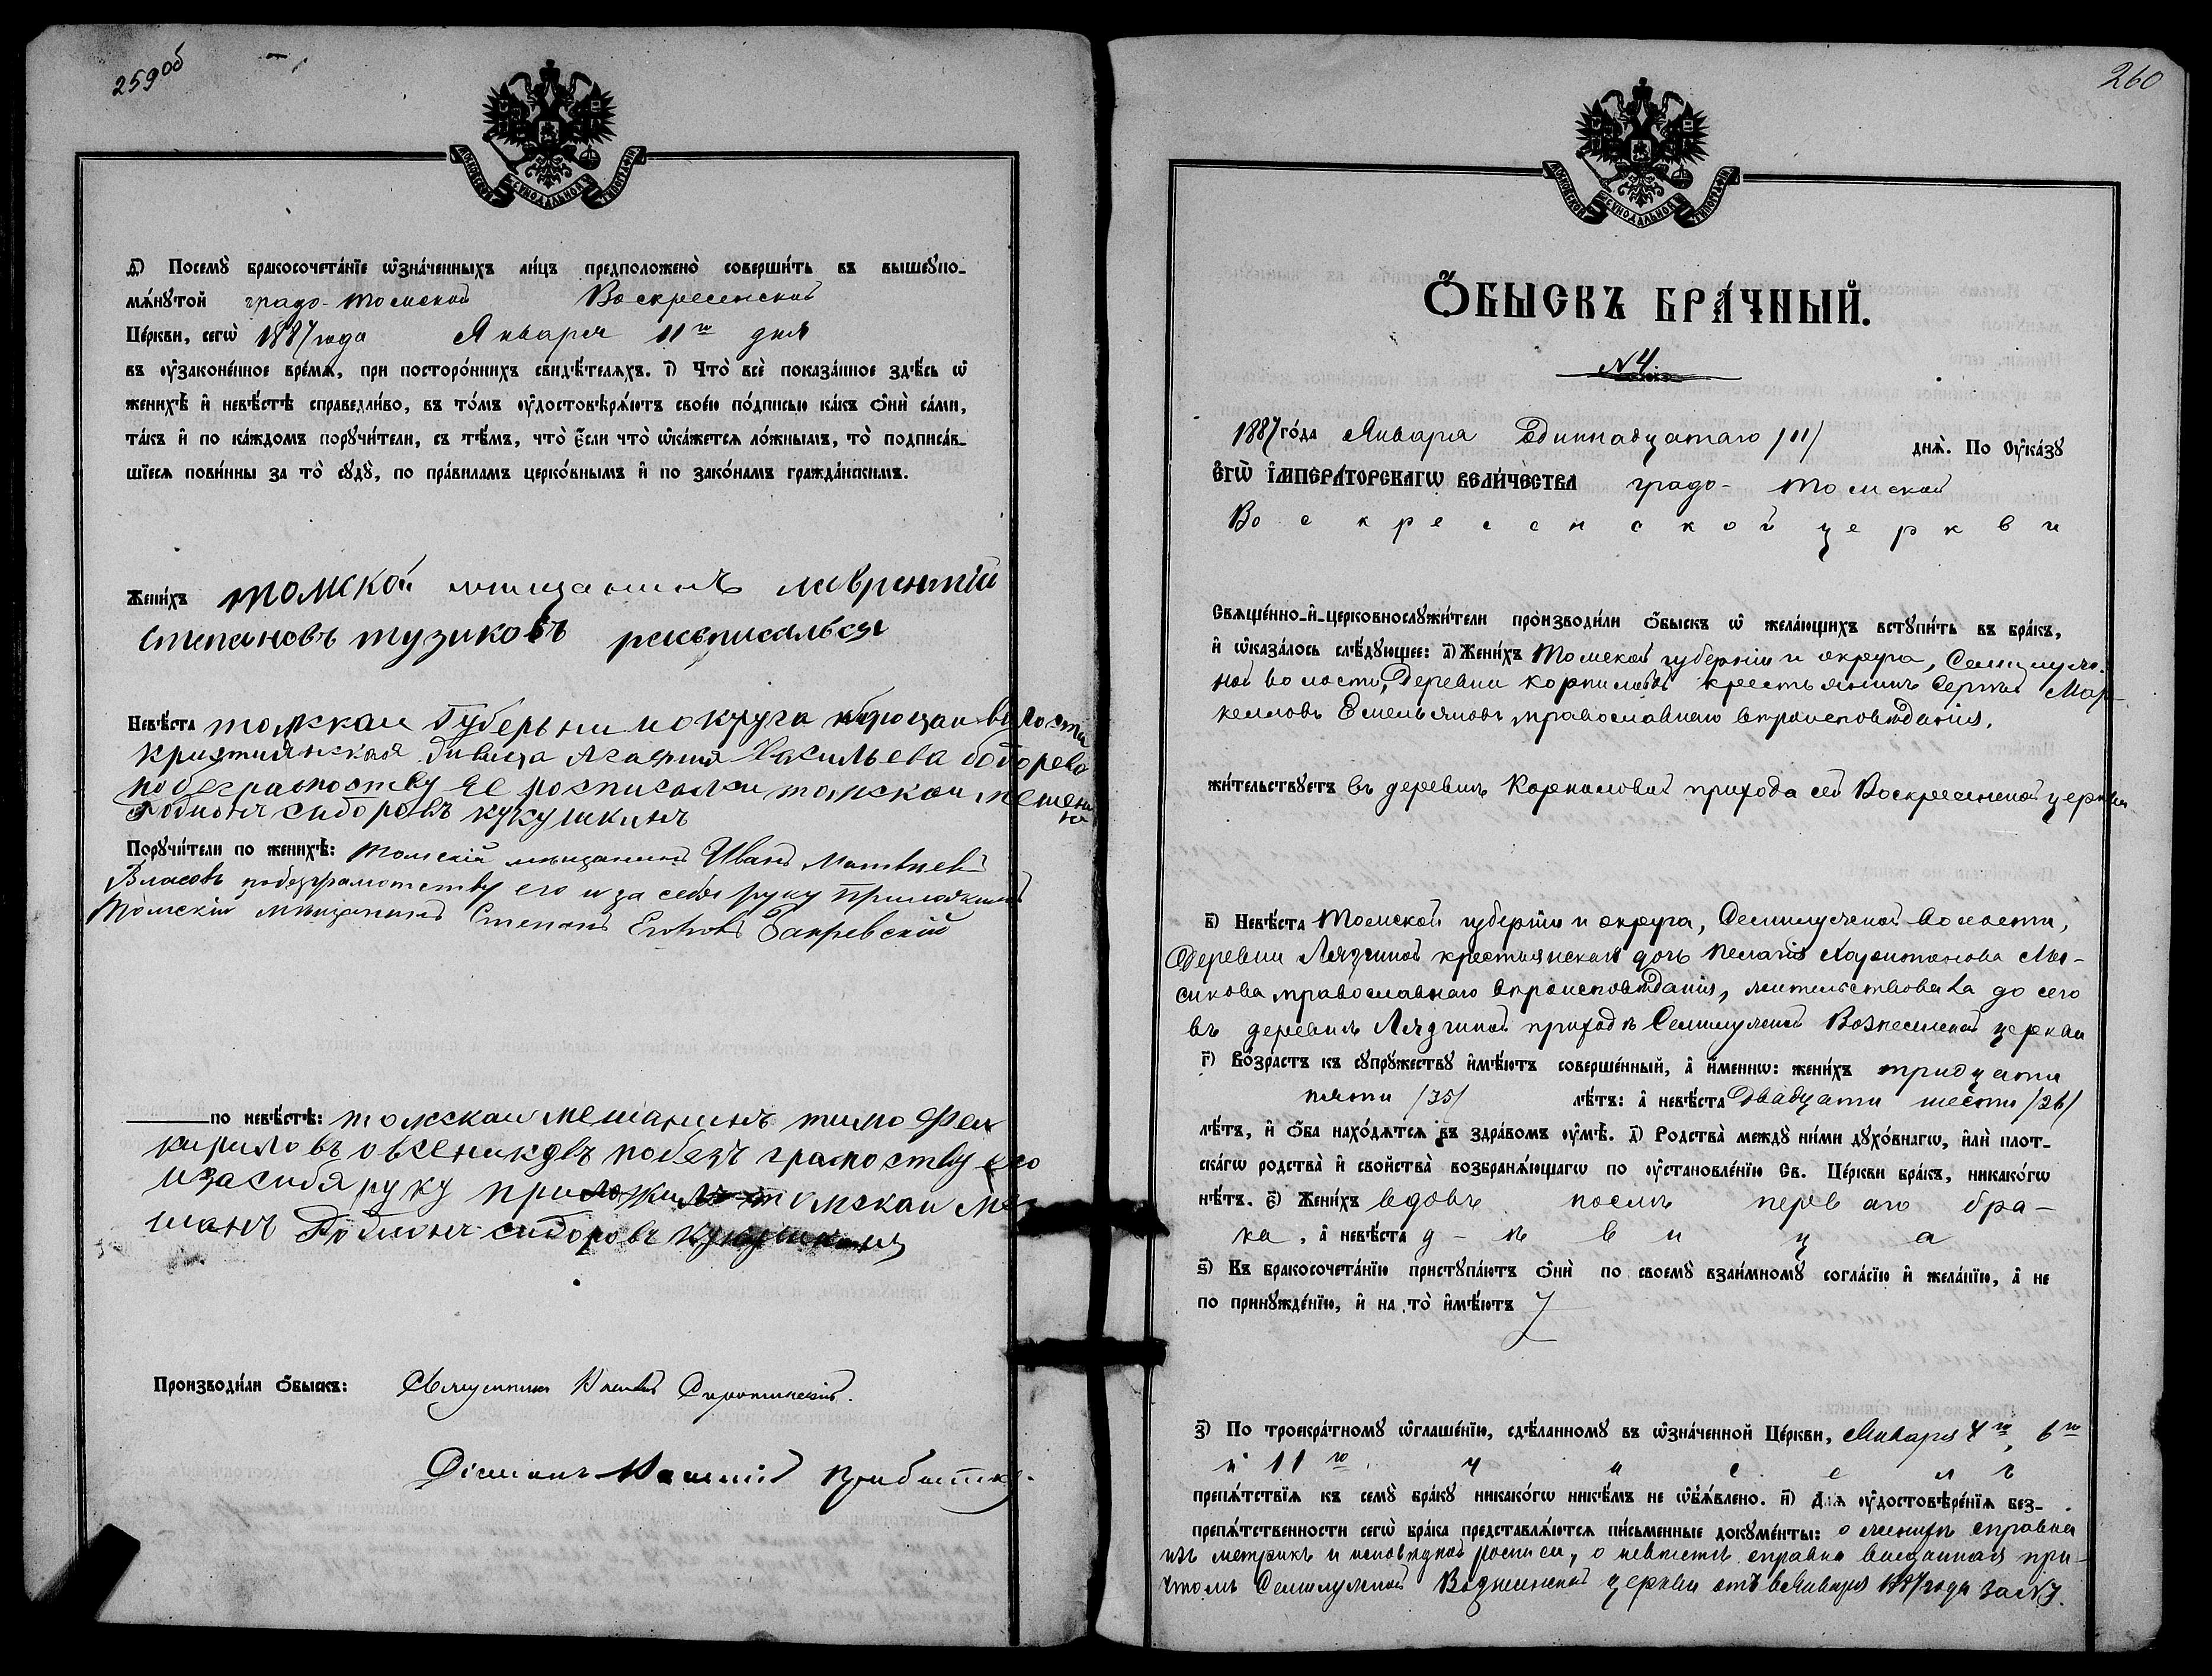 259 об
МОСКОВСКОЙ СѴНОДАЛЬНОЙ ТИПОГРАФІИ
д҃і) Посемꙋ̀ бракосочета́нїе ѡ҆зна́ченныхъ ли́цъ предположено̀ соверши́ть въ вышеꙋпо-
мѧ́нꙋтой градо-Томской Воскресенской
Це́ркви, сегѡ̀ 1887 года Января 11го дня
въ ᲂу҆зако́ненное вре́мѧ, при посторо́ннихъ свидѣ́телѧхъ. і҃) Что̀ всѐ пока́занное здѣ́сь ѡ҆
женихѣ̀ и҆ невѣ́стѣ справедли́во, въ то́мъ ᲂу҆достовѣрѧ́ютъ свое́ю по́дписью ка́къ ѻ҆нѝ са́ми,
та́къ и҆ по ка́ждомъ порꙋчи́тели, съ тѣ́мъ, что̀ є҆́сли что̀ ѡ҆ка́жетсѧ ло́жнымъ, то̀ подписа́в-
шїесѧ пови́нны за то̀ сꙋдꙋ̀, по пра́виламъ церко́внымъ и҆ по зако́намъ гражда́нскимъ.
Жени́хъ томской мищанинъ лаврентій
степановъ тузиковъ росписалься
Невѣ́ста томскаи Губерьни иокруга волости
дивица Агафия Васильева бобарева
побезграмоству ее росписалси томскаи мешени
нъ сидоровъ кукушкинъ
Порꙋчи́тели по женихѣ̀: Томскій мѣщанинъ Иванъ Матвѣевъ
Власовъ побезграмотству его и за себя руку приложилъ
Томскій мѣщанинъ Степанъ
по невѣ́стѣ: томскаи мешанинъ тимофеи
кириловъ овсениковъ побезъ грамоству его
изасибя руку приложилъ томскаи ме
шанъ сидоровъ кукушкинъ
Производи́ли ѻ҆́быскъ: Священникъ
260
МОСКОВСКОЙ СѴНОДАЛЬНОЙ ТИПОГРАФІИ
Ѻ҆́БЫСКЪ БРА́ЧНЫЙ.
N 4.
1887 го́да Января Одиннадцатаго /11/ днѧ̀. По ᲂу҆ка́зꙋ
Є҆гѡ̀ І҆мпера́торскагѡ вели́чества градо-Томской
Воскресенской церкви
Свѧще́нно-и҆-церковнослꙋжи́тели производи́ли ѻ҆́быскъ ѡ҆ жела́ющихъ встꙋпи́ть въ бра́къ,
и҆ ѡ҆каза́лось слѣ́дꙋющее: а҃) Жени́хъ Томской губерніи и округа, Семилуж-
ной волости, Деревни Корниловой крестьянинъ Сергѣй Мар-
келловъ Емельяновъ православнаго вѣроисповѣданія,
жи́тельствꙋетъ въ деревнѣ Корниловой прихода сей Воскресенской церкви
в҃) Невѣ́ста Томской губерніи и округа, Семилужной волости,
Деревни Лязгиной крестьянская дочь Пелагія Харитонова Мы-
сикова православнаго вѣроисповѣданія, жительствовала до сего
въ деревнѣ Лязгиной приходѣ Семилужной Вознесенской церкви
г҃) Во́зрастъ къ сꙋпрꙋ́жествꙋ и҆мѣ́ютъ соверше́нный, а҆ и҆́меннѡ: жени́хъ тридцати
пяти /35/ лѣ́тъ: а҆ невѣ́ста Двадцати шести /26/
лѣ́тъ, и҆ ѻ҆́ба нахо́дѧтсѧ въ здра́вомъ ᲂу҆мѣ̀. д҃) Родства̀ междꙋ̀ ни́ми дꙋхо́внагѡ, и҆лѝ плот-
ска́гѡ родства̀ и҆ сво́йства возбранѧ́ющагѡ по ᲂу҆становле́нїю Св. Це́ркви бра́къ, никако́гѡ
нѣ́тъ. є҃) Жени́хъ вдовъ послѣ перваго бра-
ка, а҆ невѣ́ста д-ѣвица
ѕ҃) Къ бракосочета́нїю пристꙋпа́ютъ ѻ҆нѝ по своемꙋ̀ взаи́мномꙋ согла́сїю и҆ жела́нїю, а҆ не
по принꙋжде́нїю, и҆ на то̀ и҆мѣ́ютъ
з҃) По троекра́тномꙋ ѡ҆глаше́нїю, сдѣ́ланномꙋ въ ѡ҆зна́ченной Це́ркви, Января 4го, 6го
и 11го чиселъ
препѧ́тствїѧ къ семꙋ̀ бра́кꙋ никако́гѡ никѣ́мъ не ѡ҆б̾ѧ́влено. и҃) Для ᲂу҆достовѣре́нїѧ без-
препѧ́тственности сегѡ̀ бра́ка представлѧ́ютсѧ пи́сьменные докꙋме́нты: о женихѣ справка
изъ метрикъ и исповѣдной росписи, о невѣстѣ справка выданная при-
чтомъ Семилужной Вознесенской церкви отъ 6 Января 1887 года за N 3.